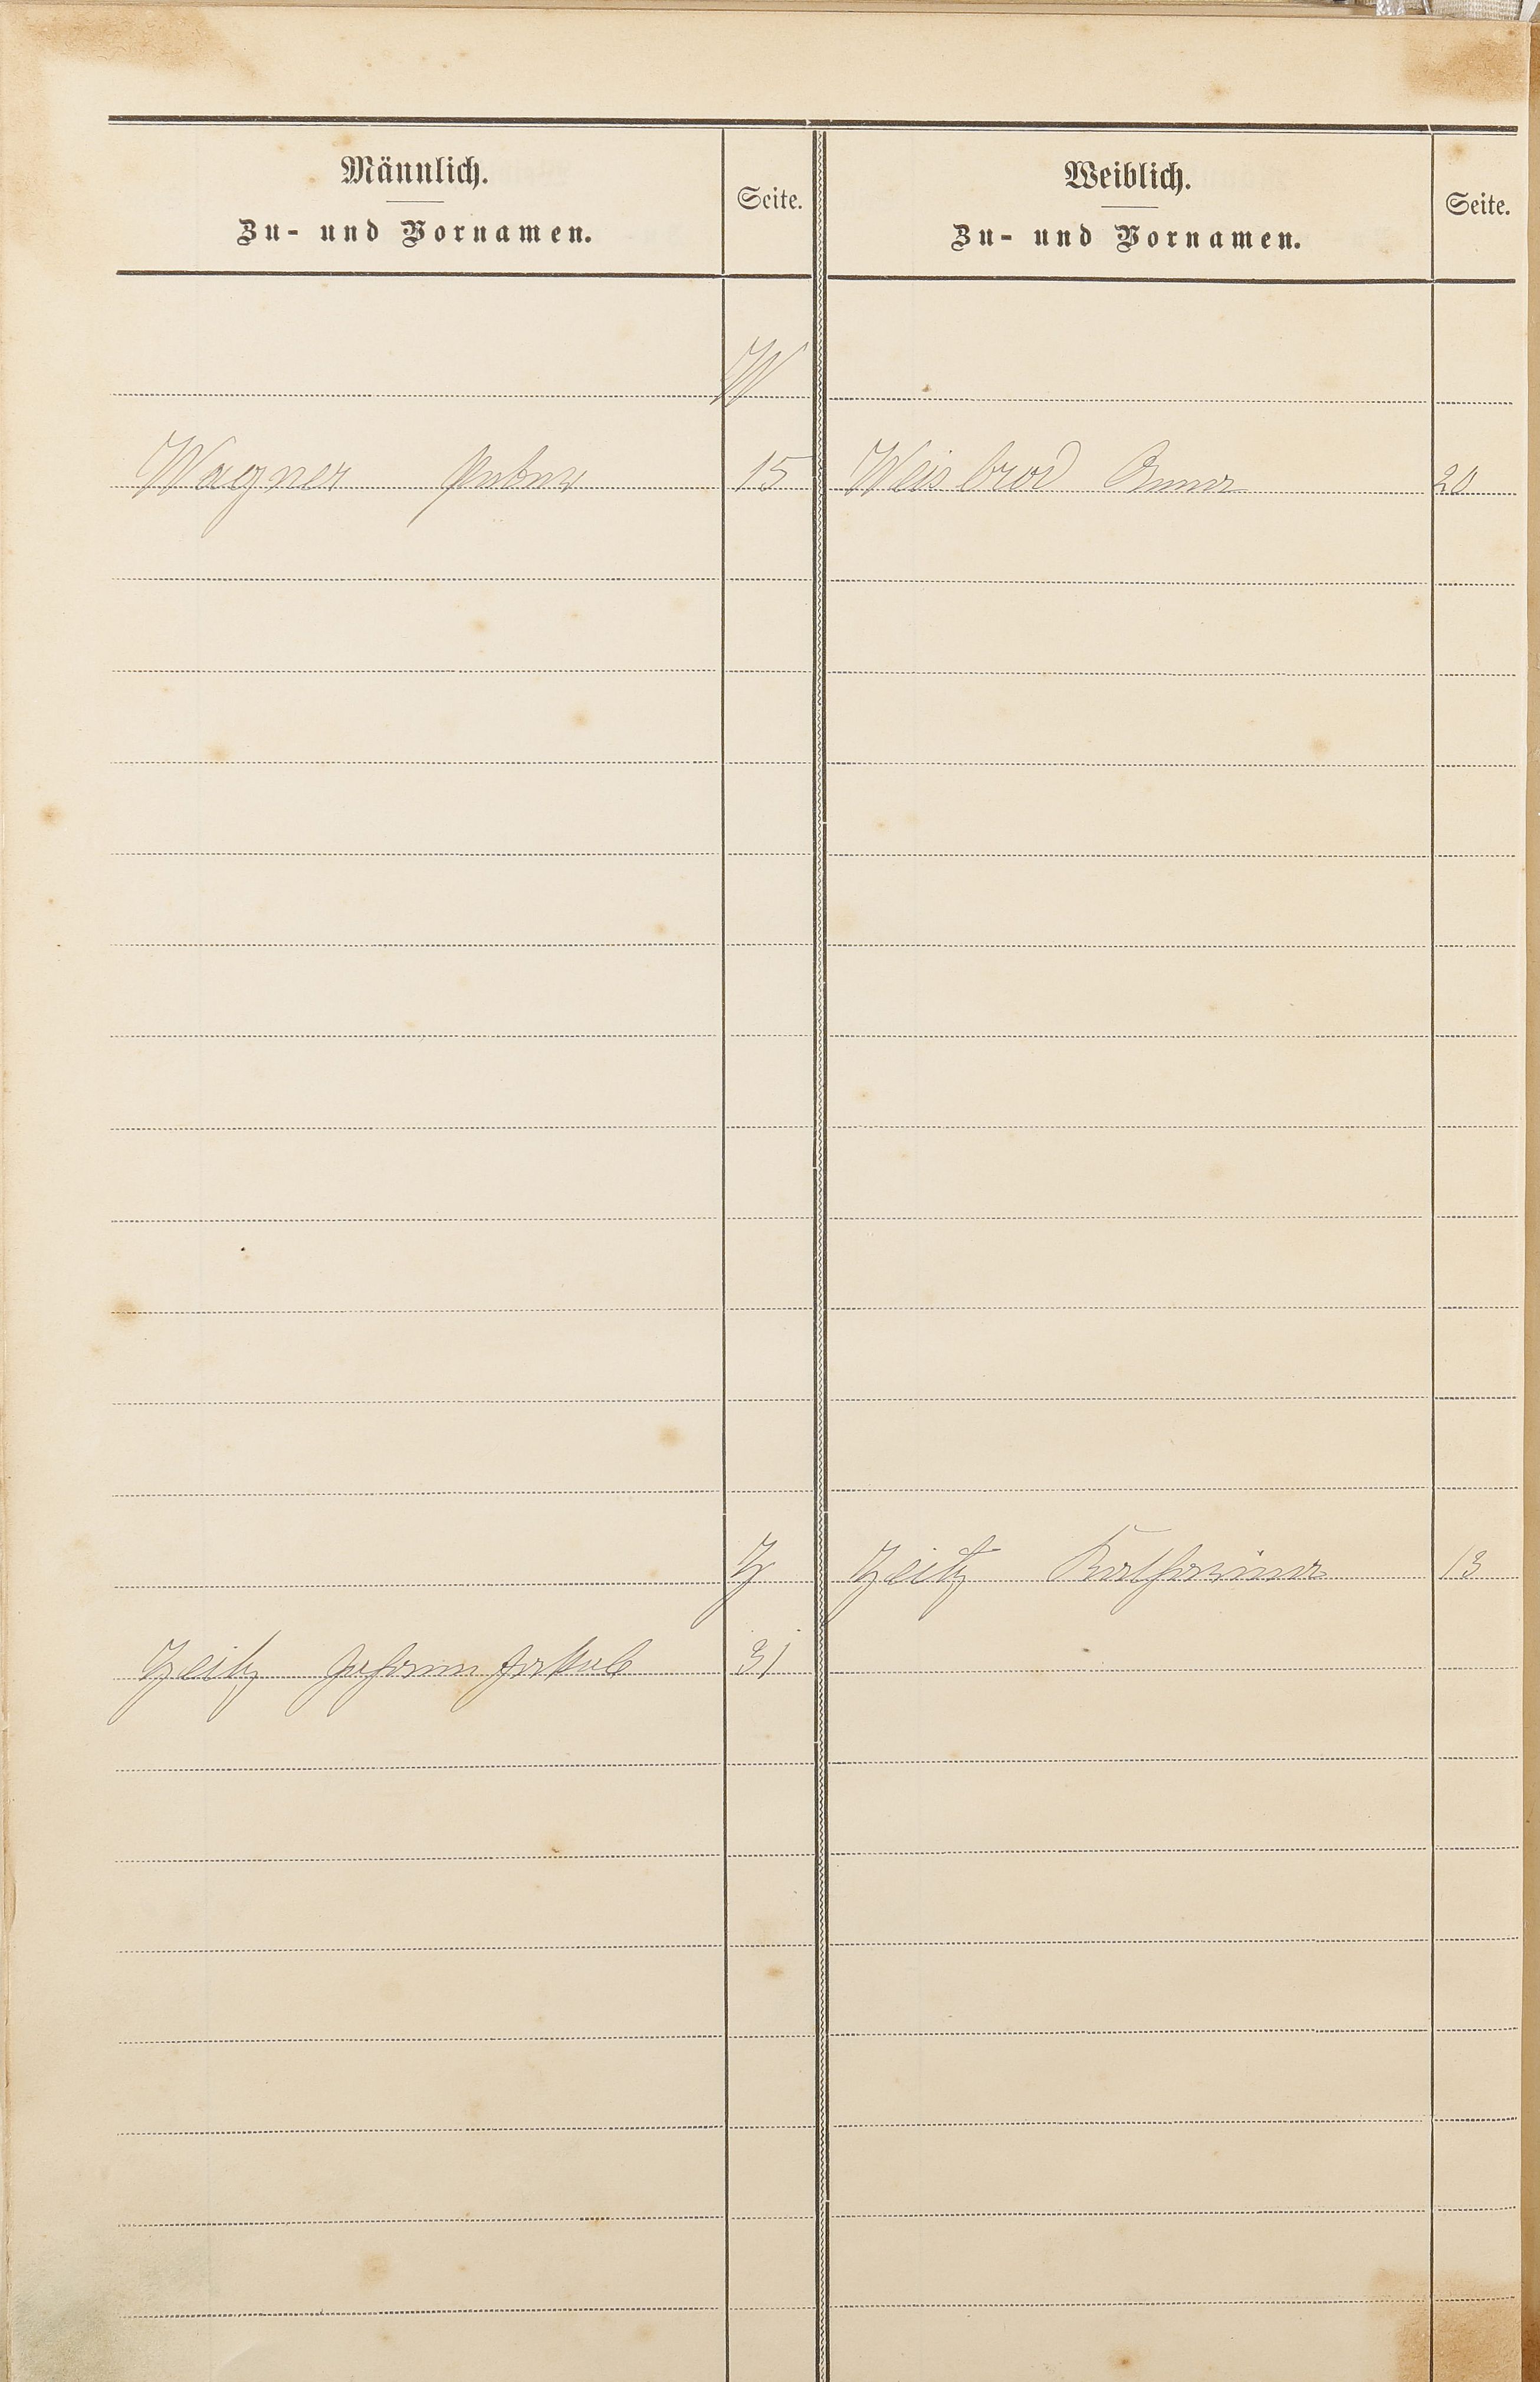 Männlich.
Zu- und Vornamen.
Seite.
Weiblich.
Zu- und Vornamen.
Seite.
W
Wagner Peter 15 Weisbrod Anna 20
Z Zeitz Katharina 13
Zeitz Johann Jakob 31